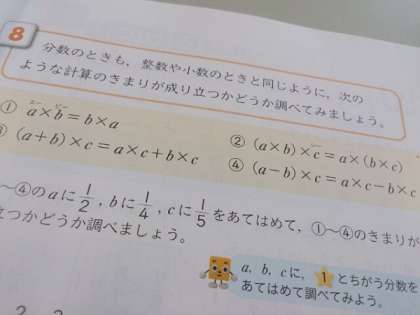 8
分数のときも,整数や小数のときと同じように,次の
ような計算のきまりが成り立つかどうか調べてみましょう。
① a×b=b×a
② (a×b)×c=a×(b×c)
③ (a+b)×c=a×c+b×c
④ (a−b)×c=a×c−b×c
~④のaに1/2,bに1/4,cに1/5をあてはめて,①~④のきまりが
立つかどうか調べましょう。
a,b,cに,1とちがう分数を
あてはめて調べてみよう。